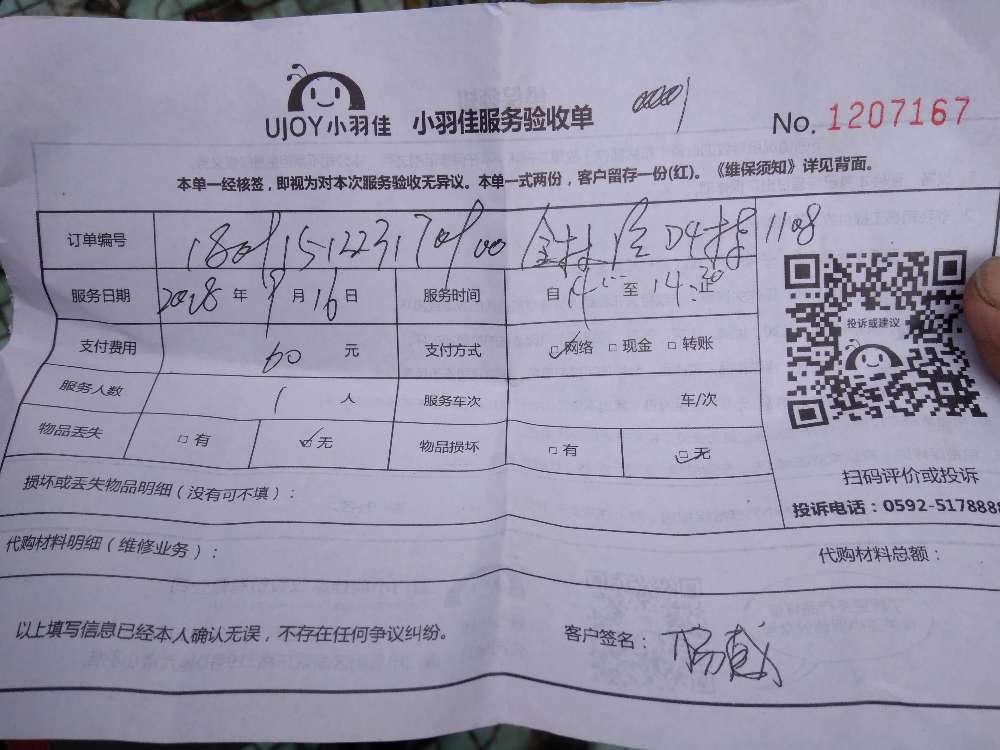 UJOY小羽佳 小羽佳服务验收单 No. 1207167
本单一经核签，即视为对本次服务验收无异议。本单一式两份，客户留存一份(红)。《维保须知》详见背面。
订单编号 D4栋 1108
服务日期 2018 年 9 月 16 日 服务时间 自 14 至 14:20 止
支付费用 60 元 支付方式 网络 现金 转账
服务人数 1 人 服务车次 车/次
物品丢失 有 无 物品损坏 有 无
投诉或建议
扫码评价或投诉
投诉电话：0592-5178888
损坏或丢失物品明细（没有可不填）：
代购材料明细（维修业务）： 代购材料总额：
以上填写信息已经本人确认无误，不存在任何争议纠纷。 客户签名：